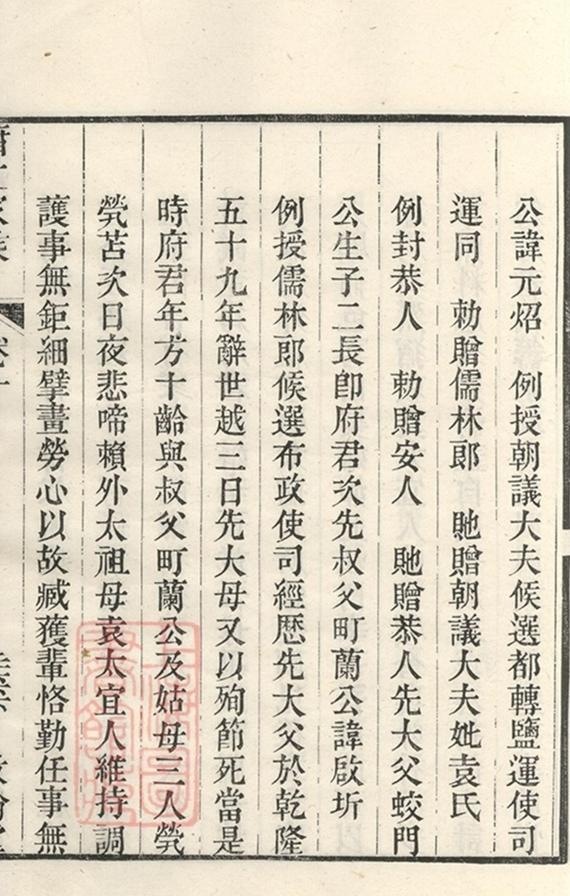 公諱元炤　例授朝議大夫候選都轉鹽運使司
運同　勅贈儒林郎　貤贈朝議大夫妣袁氏
例封恭人　勅贈安人　貤贈恭人先大父蛟門
公生子二長卽府君次先叔父町蘭公諱啟圻
例授儒林郎候選布政使司經歷先大父於乾隆
五十九年辭世越三日先大母又以殉節死當是
時府君年方十齡與叔父町蘭公及姑母三人煢
煢苫次日夜悲啼賴外太祖母袁太宜人維持調
護事無鉅細擘畫勞心以故臧獲輩恪勤任事無